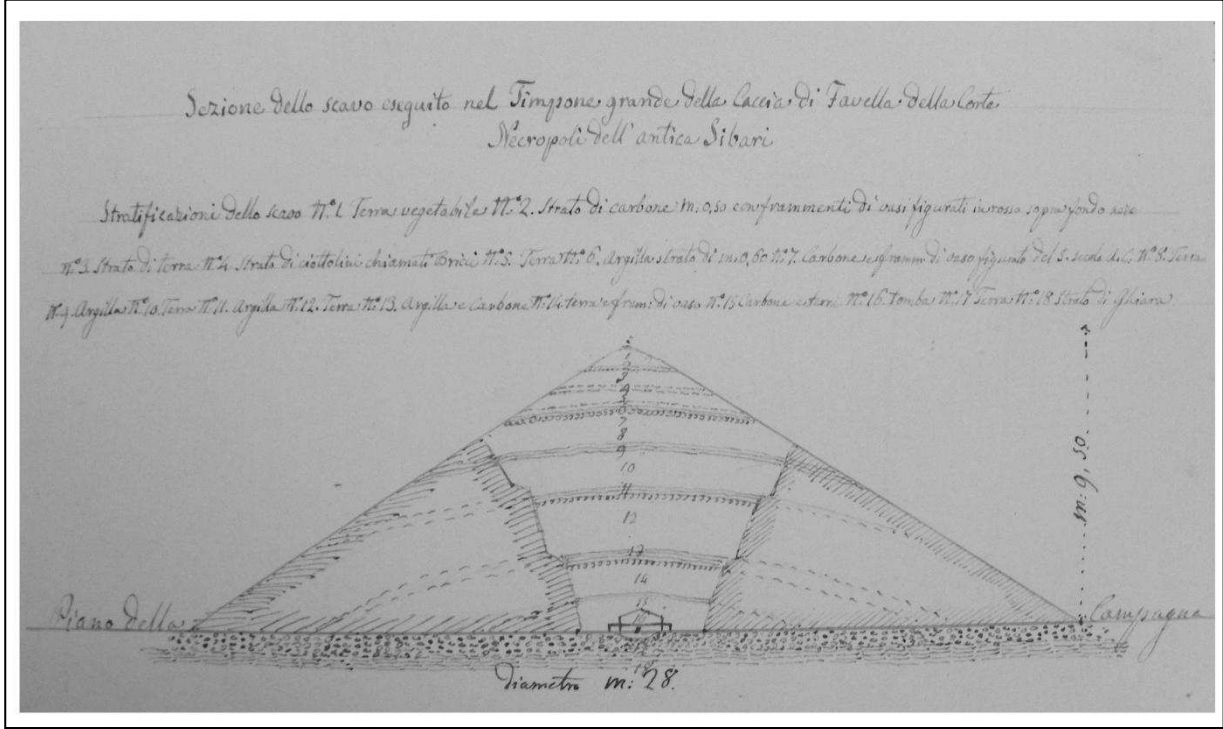 Sezione dello scavo eseguito nel Timpone grande della Caccia di Favella della Corte
Necropoli dell'antica Sibari
Stratificazioni dello scavo N.° 1. Terra vegetabile N.° 2. Strato di carbone m. 0,50 con frammenti di vasi figurati in rosso sopra fondo
n.° 3. Strato di terra n.° 4. Strato di ciottolini chiamati Brici n.° 5. Terra n.° 6. Argilla strato di m. 0,60 n.° 7. Carbone e framm: di vaso figurato del 5. secolo a.C. n.° 8. Terra
N.° 9. Argilla N.° 10. Terra N.° 11. Argilla N.° 12. Terra N.° 13. Argilla e Carbone N.° 14 terra e fram: di vaso N.° 15 Carbone e terra N.° 16. tomba N.° 17 Terra N.° 18 Strato di Ghiara
1
2
3
4
5
6
7
8
9
10
11
12
13
14
15
m: 9,50
Piano della Campagna
18
diametro m: 28.